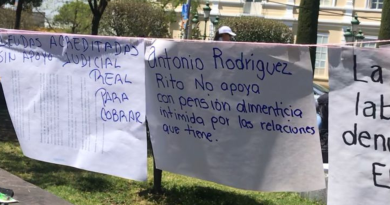 DEUDAS ACREDITADAS
SIN APOYO JUDICIAL
REAL
PARA
COBRAR
Antonio Rodriguez
Rito No apoya
con pensión alimenticia
intimida por las relaciones
que tiene.
La